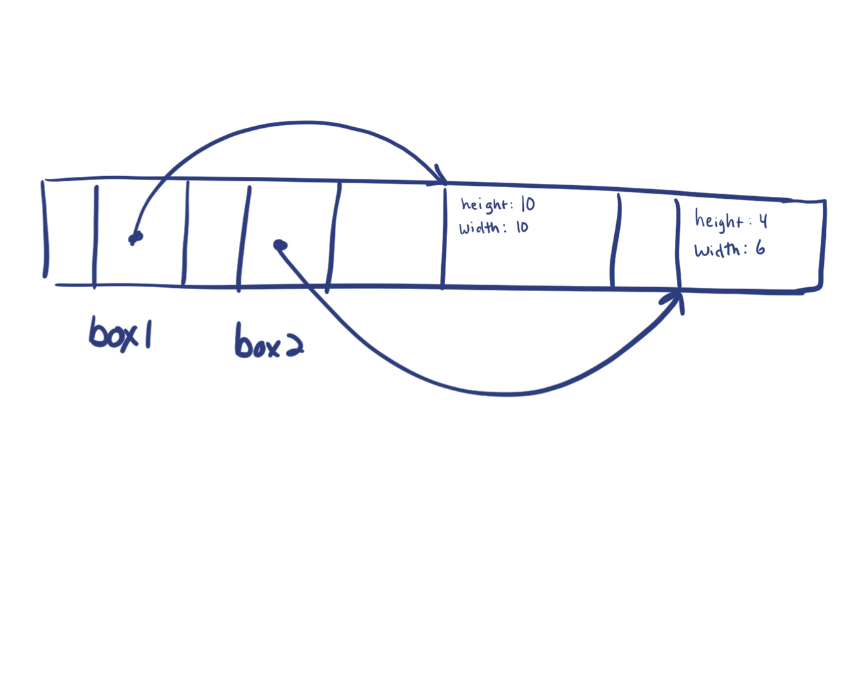 height: 10
width: 10
height: 4
width: 6
box1
box2